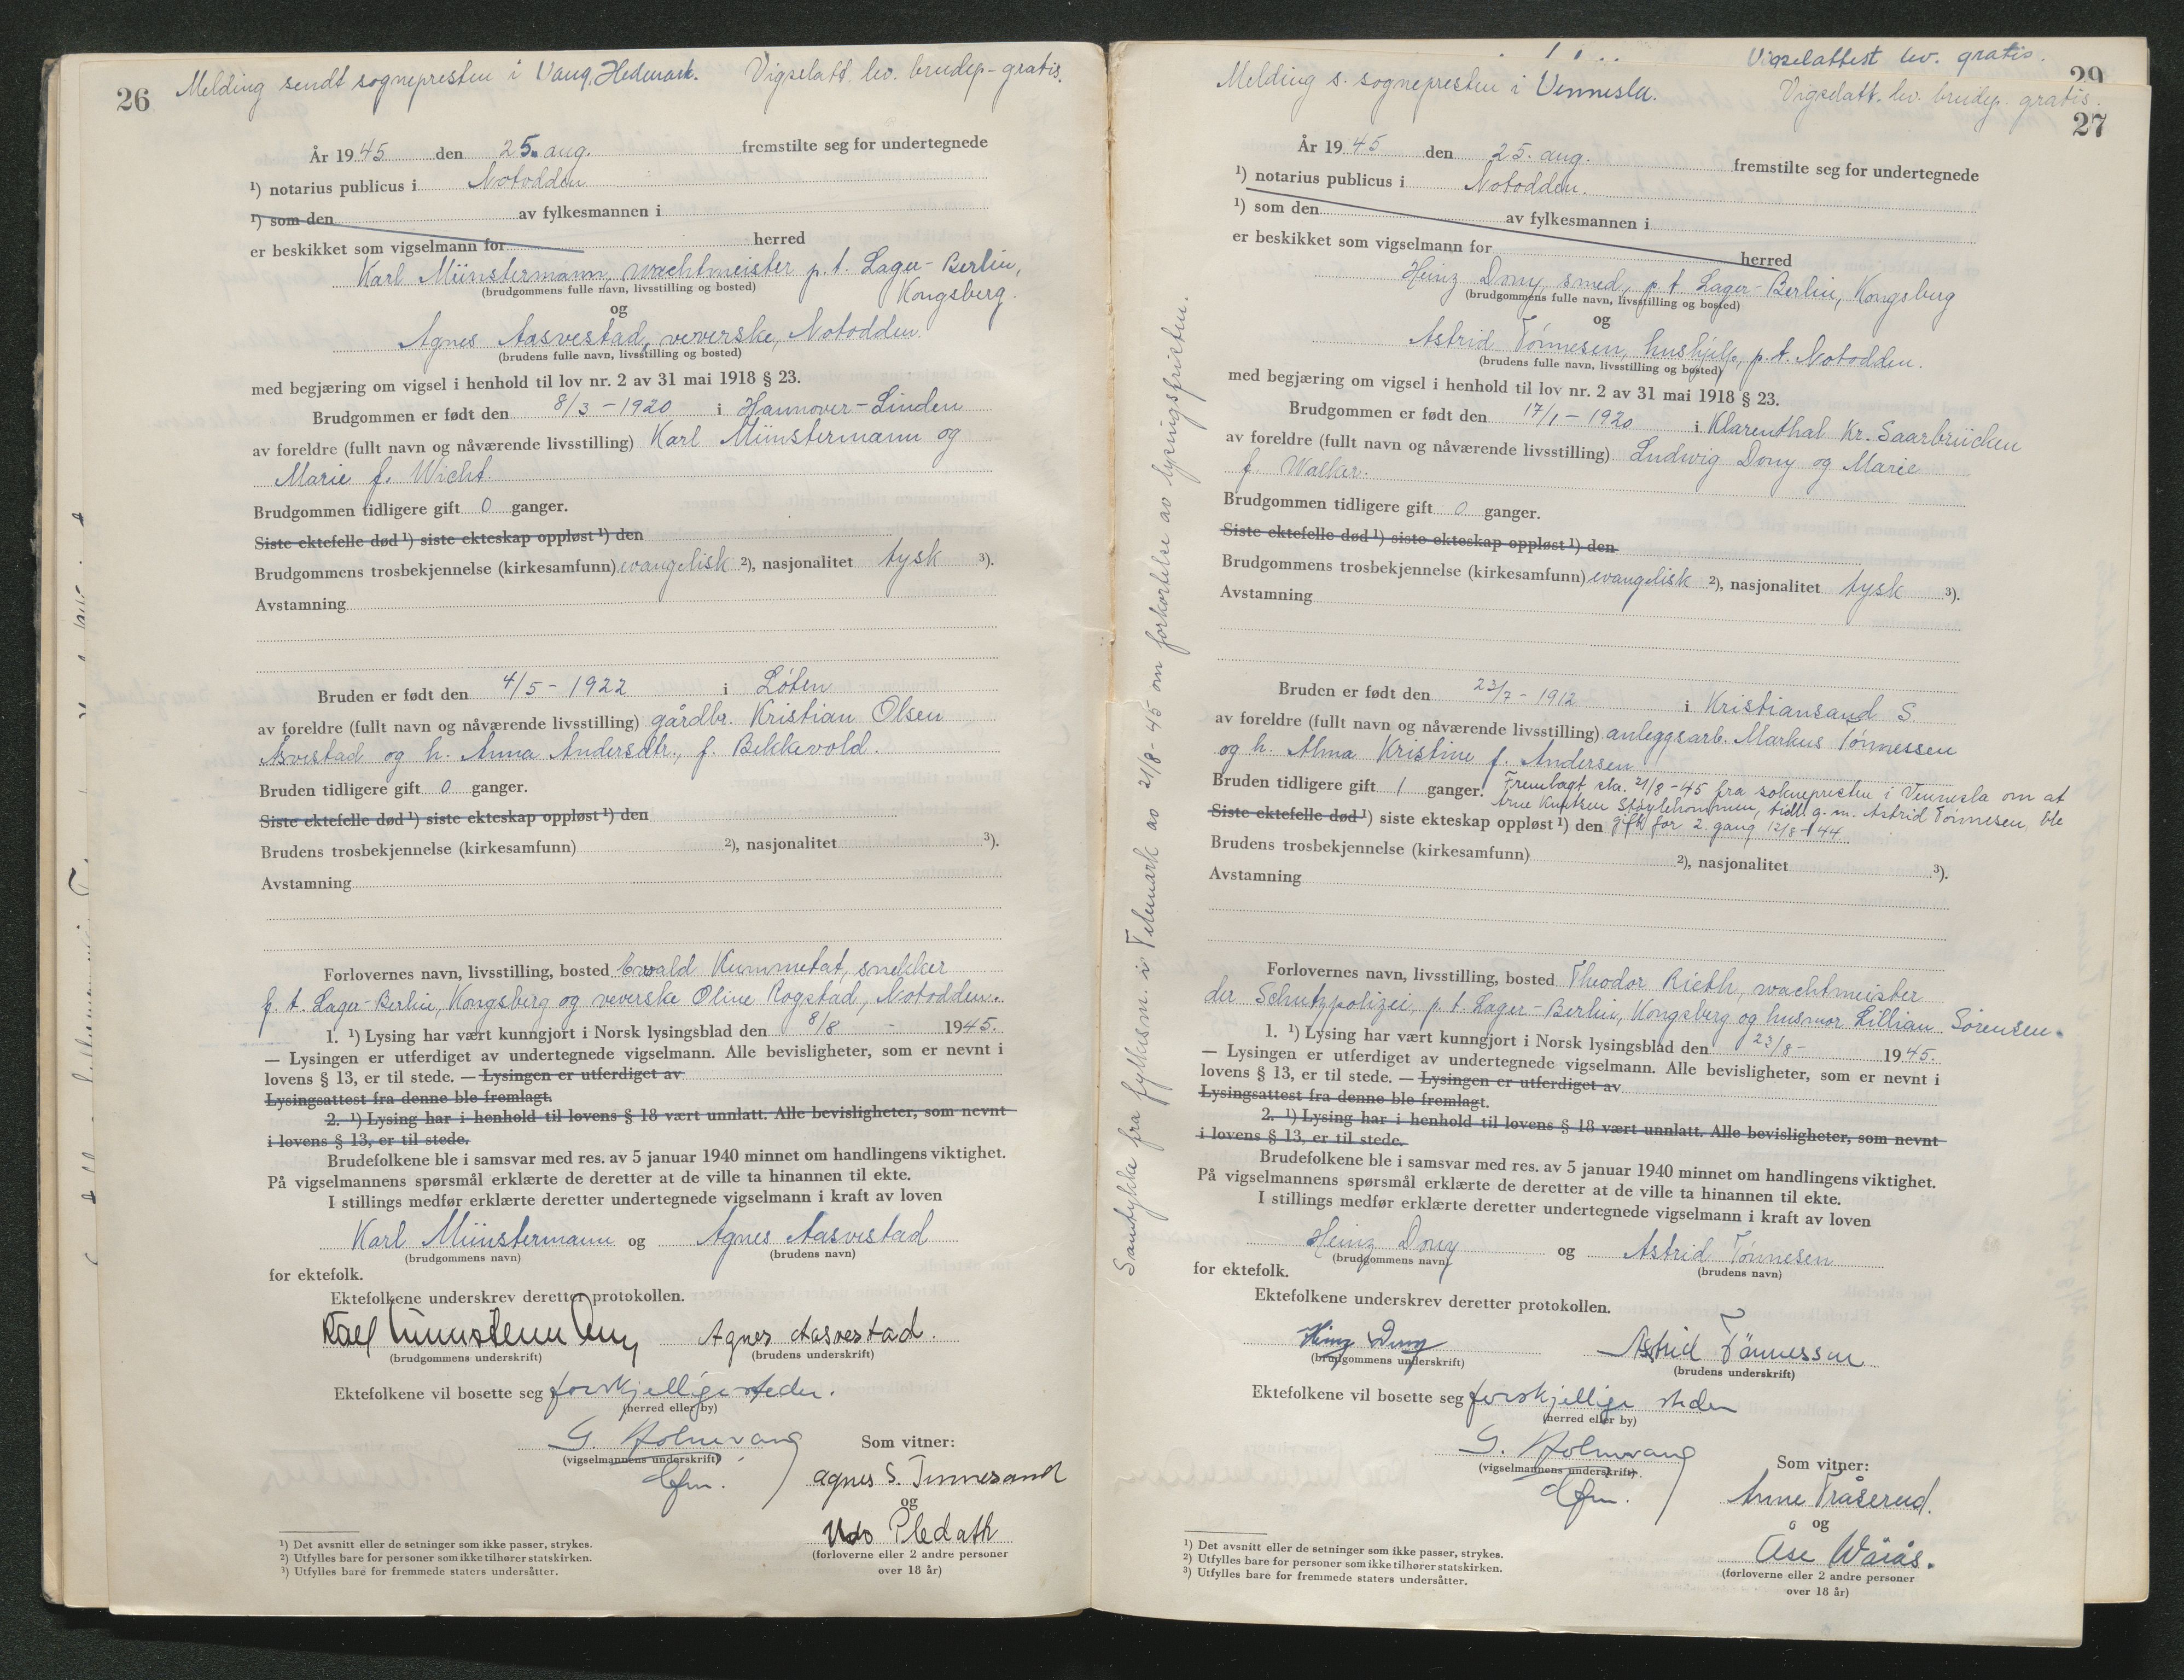 26
Melding sendt sognepresten i Vang, Hedmark. Vigselatt. lev. brudep - gratis.
År 1945 den 25. aug. fremstilte seg for undertegnede
¹) notarius publicus i Notodden
¹) som den av fylkesmannen i
er beskikket som vigselmann for herred
Karl Münstermann, wachtmeister p.t. Lager-Berlin,
(brudgommens fulle navn, livsstilling og bosted)
Kongsberg.
og
Agnes Aasvestad, veverske, Notodden.
(brudens fulle navn, livsstilling og bosted)
med begjæring om vigsel i henhold til lov nr. 2 av 31 mai 1918 § 23.
Brudgommen er født den 8/3 - 1920 i Hannover-Linden
av foreldre (fullt navn og nåværende livsstilling) Karl Münstermann og
Marie f. Wicht
Brudgommen tidligere gift 0 ganger.
Siste ektefelle død ¹) siste ekteskap oppløst ¹) den
Brudgommens trosbekjennelse (kirkesamfunn) evangelisk ²), nasjonalitet tysk ³).
Avstamning
Bruden er født den 4/5 - 1922 i Løten
av foreldre (fullt navn og nåværende livsstilling) gårdbr. Kristian Olsen
Åsvestad og h. Anna Andersdtr., f. Bekkevold.
Bruden tidligere gift 0 ganger.
Siste ektefelle død ¹) siste ekteskap oppløst ¹) den
Brudens trosbekjennelse (kirkesamfunn) ²), nasjonalitet ³).
Avstamning
Forlovernes navn, livsstilling, bosted Ewald Kummetat, snekker
p.t. Lager-Berlin, Kongsberg og veverske Oline Rogstad, Notodden.
1. ¹) Lysing har vært kunngjort i Norsk lysingsblad den 8/8 - 1945.
— Lysingen er utferdiget av undertegnede vigselmann. Alle bevisligheter, som er nevnt i
lovens § 13, er til stede. — Lysingen er utferdiget av
Lysingsattest fra denne ble fremlagt.
2. ¹) Lysing har i henhold til lovens § 18 vært unnlatt. Alle bevisligheter, som nevnt
i lovens § 13, er til stede.
Brudefolkene ble i samsvar med res. av 5 januar 1940 minnet om handlingens viktighet.
På vigselmannens spørsmål erklærte de deretter at de ville ta hinannen til ekte.
I stillings medfør erklærte deretter undertegnede vigselmann i kraft av loven
Karl Münstermann og Agnes Aasvestad
(brudgommens navn) (brudens navn)
for ektefolk.
Ektefolkene underskrev deretter protokollen.
Karl Münstermann Agnes Aasvestad.
(brudgommens underskrift) (brudens underskrift)
Ektefolkene vil bosette seg forskjellige steder.
(herred eller by)
G. Holmvang Som vitner:
(vigselmannens underskrift)
Agnes S. Tinnesand
og
Udo Pledath
(forloverne eller 2 andre personer
over 18 år)
¹) Det avsnitt eller de setninger som ikke passer, strykes.
²) Utfylles bare for personer som ikke tilhører statskirken.
³) Utfylles bare for fremmede staters undersåtter.
Vigselattest lev. gratis.
29
Melding s. sognepresten i Vennesla. Vigselatt. lev. brudep. gratis.
27
År 1945 den 25. aug. fremstilte seg for undertegnede
¹) notarius publicus i Notodden.
¹) som den av fylkesmannen i
er beskikket som vigselmann for herred
Heinz Dony, smed, p.t. Lager-Berlin, Kongsberg
(brudgommens fulle navn, livsstilling og bosted)
og
Astrid Tønnesen, hushjelp, p.t. Notodden.
(brudens fulle navn, livsstilling og bosted)
med begjæring om vigsel i henhold til lov nr. 2 av 31 mai 1918 § 23.
Brudgommen er født den 17/1 - 1920 i Klarenthal Kr. Saarbrücken
av foreldre (fullt navn og nåværende livsstilling) Ludwig Dony og Marie
f. Walker.
Brudgommen tidligere gift 0 ganger.
Siste ektefelle død ¹) siste ekteskap oppløst ¹) den
Brudgommens trosbekjennelse (kirkesamfunn) evangelisk ²), nasjonalitet tysk ³).
Avstamning
Bruden er født den 23/7 - 1912 i Kristiansand S.
av foreldre (fullt navn og nåværende livsstilling) anleggsarb. Markus Tønnessen
og h. Alma Kristine f. Andersen
Bruden tidligere gift 1 ganger. Fremlagt skr. 21/8 - 45 fra soknepresten i Vennesla om at
Arne Knutsen Støylehommen, tidl. g. m. Astrid Tønnesen, ble
Siste ektefelle død ¹) siste ekteskap oppløst ¹) den gift for 2. gang 12/8 - 44
Brudens trosbekjennelse (kirkesamfunn) ²), nasjonalitet ³).
Avstamning
Forlovernes navn, livsstilling, bosted Theodor Rieth, wachtmeister
der Schutzpolizei, p.t. Lager-Berlin, Kongsberg og husmor Lillian Sørensen.
1. ¹) Lysing har vært kunngjort i Norsk lysingsblad den 23/8 - 1945.
— Lysingen er utferdiget av undertegnede vigselmann. Alle bevisligheter, som er nevnt i
lovens § 13, er til stede. — Lysingen er utferdiget av
Lysingsattest fra denne ble fremlagt.
2. ¹) Lysing har i henhold til lovens § 18 vært unnlatt. Alle bevisligheter, som nevnt
i lovens § 13, er til stede.
Brudefolkene ble i samsvar med res. av 5 januar 1940 minnet om handlingens viktighet.
På vigselmannens spørsmål erklærte de deretter at de ville ta hinannen til ekte.
I stillings medfør erklærte deretter undertegnede vigselmann i kraft av loven
Heinz Dony og Astrid Tønnesen
(brudgommens navn) (brudens navn)
for ektefolk.
Ektefolkene underskrev deretter protokollen.
Heinz Dony Astrid Tønnessen
(brudgommens underskrift) (brudens underskrift)
Ektefolkene vil bosette seg forskjellige steder
(herred eller by)
G. Holmvang Som vitner:
(vigselmannens underskrift).
Anne Tråserud.
og
Åse Wåiås.
(forloverne eller 2 andre personer
over 18 år)
¹) Det avsnitt eller de setninger som ikke passer, strykes.
²) Utfylles bare for personer som ikke tilhører statskirken.
³) Utfylles bare for fremmede staters undersåtter.
Samtykke fra fylkesm. i Telemark av 21/8 - 45 om forkortelse av lysingsfristen.